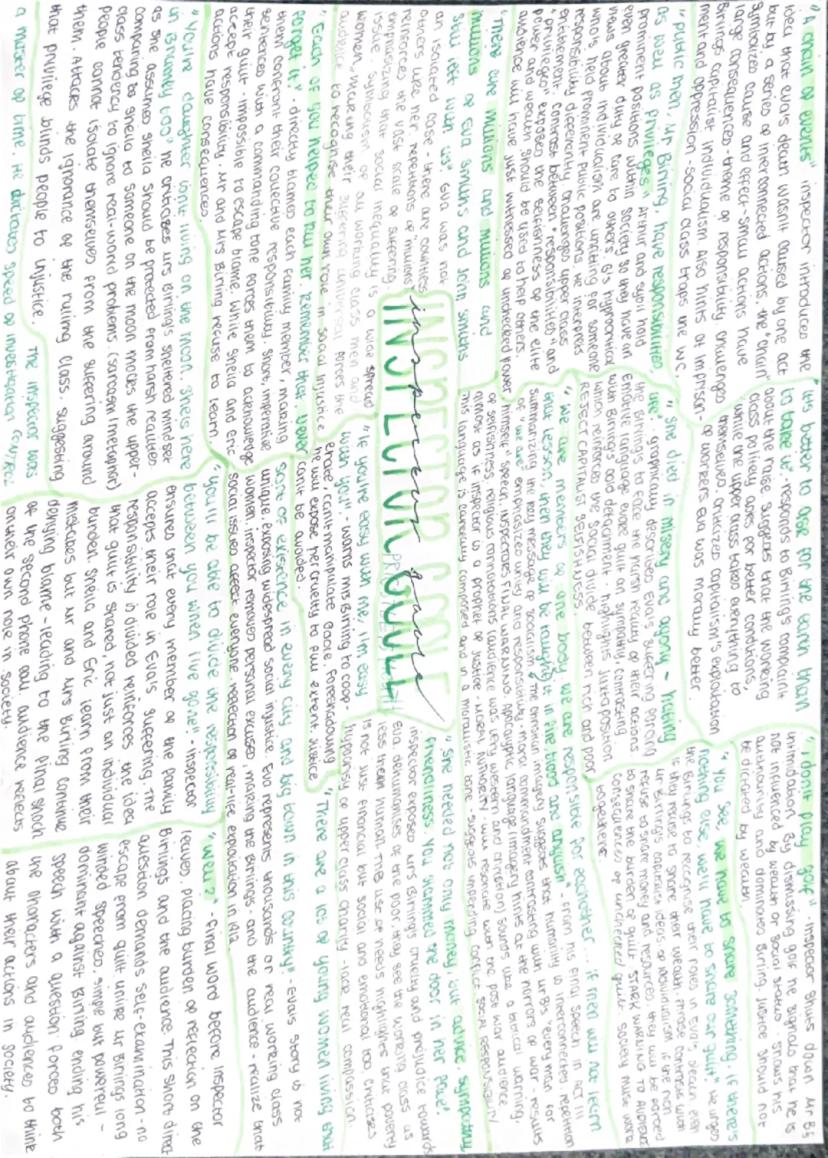 "A chain of events" inspector introduces the
idea that eva's death wasn't caused by one act
but by a series of interconnected actions. the "chain"
symbolizes cause and effect - small actions have
large consequences. theme of responsibility challenges
Birlings capitalist individualism. Also hints at imprison-
ment and oppression - social class traps the w.c.
"Public men, Mr Birling, have responsibilities
as well as privileges" Arthur and Sybil hold
prominent positions within society so they have an
even greater duty of care to others. B's hypocritical
views about individualism are unfitting for someone
who's held prominent public positions. He interprets
responsibility differently. Challenges upper class
entitlement. Contrast between "responsibilities" and
"privileges" exposes the selfishness of the elite
power and wealth should be used to help others.
audience will have just witnessed of unchecked power
"There are millions and millions and
millions of Eva Smiths and John Smiths
still left with us" Eva was not
an isolated case - there are countless
others like her. repetitions of "millions"
reinforces the vast scale of suffering,
emphasizing that social inequality is a wide spread
issue. Symbolism of all working class men and
women, making their suffering universal. Forces the
audience to recognise their own role in social injustice
"Each of you helped to kill her. Remember that. Never
forget it" - directly blames each family member, making
them confront their collective responsibility. Short, imperative
sentences with a commanding tone forces them to acknowledge
their guilt - impossible to escape blame. While Sheila and Eric
accept responsibility, Mr and Mrs Birling refuse to learn.
actions have consequences
"You're daughter isn't living on the moon. She's here
in Brumley too" he criticises Mrs Birling's sheltered mindset
as she assumes Sheila should be protected from harsh realities.
comparing to Sheila to someone on the moon mocks the upper-
class tendency to ignore real-world problems (sarcasm/metaphor)
people cannot isolate themselves from the suffering around
them. Attacks the ignorance of the ruling class, suggesting
that privilege blinds people to injustice. The inspector was
a matter of time. He dictates speed of investigation
inspector goole
INSPECTOR GOOLE
"it's better to ask for the earth than
to take it". responds to Birling's complaint
about the raise. suggests that the working
class politely asks for better conditions,
while the upper class takes everything to
themselves. criticizes capitalism's exploitation
of workers. Eva was morally better.
"she died in misery and agony - hating
life" - graphically describes Eva's suffering forcing
the Birlings to face the harsh reality of their actions
emotive language evoke guilt and sympathy, contrasting
with Birling's cold detachment - highlights juxtaposition
which reinforces the social divide between rich and poor
REJECT CAPITALIST SELFISHNESS
"We are members of one body. we are responsible for eachother... if men will not learn
that lesson, then they will be taught it in fire blood and anguish" - from his final speech in ACT III
summarizing the key message of socialism. The christian imagery suggests that humanity is interconnected. repetition
of "we are" emphasizes unity and responsibility - moral commandment contrasting with Mr B's "every man for
himself" speech. INSPECTOR'S FINAL WARNING. Apocalyptic language/imagery hints at the horrors of war - results
of selfishness. religious connotations (audience was very western and christian) sounds like a biblical warning,
almost as if inspector is a prophet of justice - MORAL AUTHORITY - will resonate with the post war audience
this language is carefully composed and in a moralistic tone - suggests impending conflict. SOCIAL RESPONSIBILITY
"If you're easy with me, I'm easy
with you" - warns Mrs Birling to coop-
erate / can't manipulate Goole. Foreshadowing
he will expose her cruelty to full extent. Justice
can't be avoided
sort of existence in every city and big town in this country" - Eva's story is not
unique, exposing widespread social injustice. Eva represents thousands of real working class
women. inspector removes personal excuses making the Birlings - and the audience - realize that
social issues affect everyone. Reflection of real-life exploitation in 1912
"You'll be able to divide the responsibility
between you when I've gone" - inspector
ensures that every member of the family
accepts their role in Eva's suffering. The
responsibility is divided reinforces the idea
that guilt is shared, not just an individual
burden. Sheila and Eric learn from their
mistakes but Mr and Mrs Birling continue
denying blame - leading to the final shock
of the second phone call. audience reflects
on their own role in society.
"I don't play golf" - inspector shuts down Mr B's
intimidation. By dismissing golf he signals that he is
not influenced by wealth or social status - shows his
authority and dominates Birling. Justice should not
be dictated by wealth
"You see, we have to share something. if there's
nothing else, we'll have to share our guilt." he urges
the Birlings to recognise their roles in Eva's death even
if they refuse to share their wealth. phrase contrasts with
Mr Birling's capitalist ideas of individualism. if the rich
refuse to share money and resources, they will be forced
to share the burden of guilt. STARK WARNING TO AUDIENCE
consequences of unchecked guilt. society must work
together
"She needed not only money but advice, sympathy
friendliness. You slammed the door in her face"
inspector exposes Mrs Birling's cruelty and prejudice towards
Eva. dehumanises of the poor, they see the working class as
less than human. The use of needs highlights that poverty
is not just financial but social and emotional too. Criticises
hypocrisy of upper class charity - lack real compassion.
"There are a lot of young women living that
"Well?" - Final word before inspector
leaves, placing burden of reflection on the
Birlings and the audience. This short direct
question demands self-examination - no
escape from guilt unlike Mr Birling's long
winded speeches, simple but powerful -
dominant against Birling. ending his
speech with a question forces both
the characters and audiences to think
about their actions in society